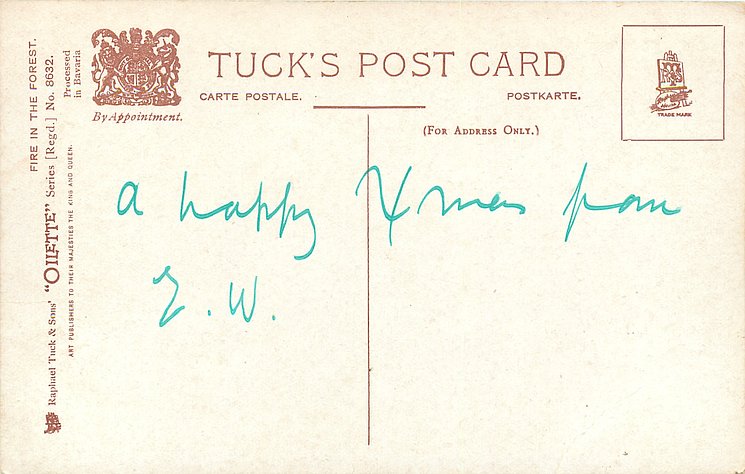 TUCK'S POST CARD
CARTE POSTALE.
POSTKARTE.
(FOR ADDRESS ONLY.)
By Appointment.
TRADE MARK
FIRE IN THE FOREST.
Raphael Tuck & Sons' "OILETTE" Series [Regd.] No. 8632.
ART PUBLISHERS TO THEIR MAJESTIES THE KING AND QUEEN.
Processed
in Bavaria
a happy Xmas
E. W.